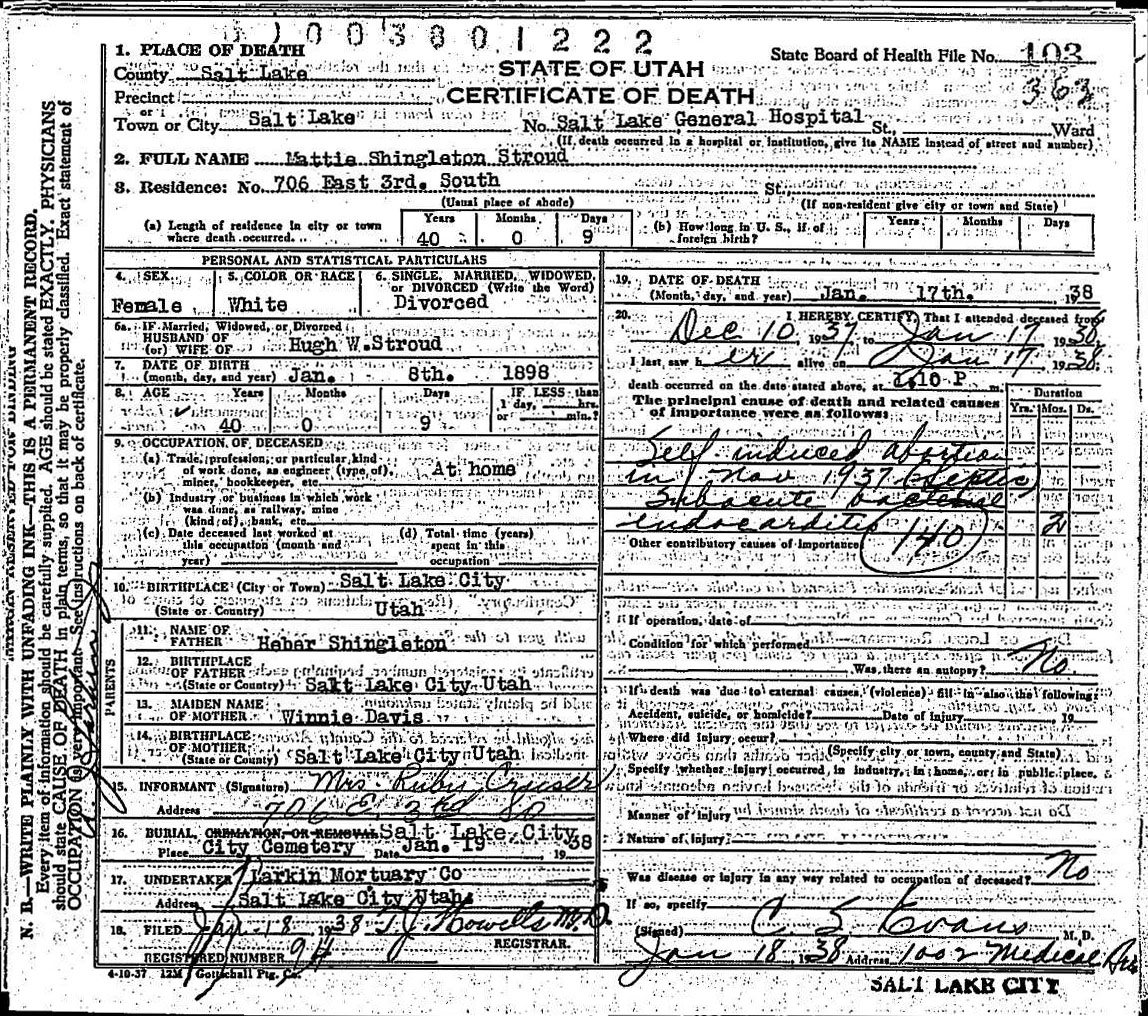 1003801222
1. PLACE OF DEATH
County Salt Lake
STATE OF UTAH
State Board of Health File No. 103
363
Precinct
CERTIFICATE OF DEATH
or
Town or City Salt Lake No. Salt Lake General Hospital St., Ward
(If death occurred in a hospital or institution, give its NAME instead of street and number)
2. FULL NAME Mattie Shingleton Stroud
3. Residence: No. 706 East 3rd. South St.
(Usual place of abode) (If non-resident give city or town and State)
(a) Length of residence in city or town where death occurred. Years 40 Months 0 Days 9
(b) How long in U. S., if of foreign birth? Years Months Days
PERSONAL AND STATISTICAL PARTICULARS
4. SEX Female
5. COLOR OR RACE White
6. SINGLE, MARRIED, WIDOWED, or DIVORCED (Write the Word) Divorced
6a. IF Married, Widowed, or Divorced
HUSBAND OF
(or) WIFE OF Hugh W. Stroud
7. DATE OF BIRTH
(month, day, and year) Jan. 8th. 1898
8. AGE Years 40 Months 0 Days 9 IF LESS than 1 day, hrs. or min.?
9. OCCUPATION OF DECEASED
(a) Trade, profession, or particular kind of work done, as engineer (type of), miner, bookkeeper, etc. At home
(b) Industry or business in which work was done, as railway, mine (kind of), bank, etc.
(c) Date deceased last worked at this occupation (month and year)
(d) Total time (years) spent in this occupation
10. BIRTHPLACE (City or Town) Salt Lake City
(State or Country) Utah
PARENTS
11. NAME OF FATHER Heber Shingleton
12. BIRTHPLACE OF FATHER
(State or Country) Salt Lake City Utah
13. MAIDEN NAME OF MOTHER Winnie Davis
14. BIRTHPLACE OF MOTHER
(State or Country) Salt Lake City Utah
15. INFORMANT (Signature) Mrs. Ruby Cruser
Address 706 E. 3rd So
16. BURIAL, CREMATION, OR REMOVAL Salt Lake City
Place City Cemetery Date Jan. 19, 1938
17. UNDERTAKER Larkin Mortuary Co
Address Salt Lake City Utah
18. FILED Jan-18 1938 T.J. Howells M.D.
REGISTRAR.
REGISTERED NUMBER 94
4-10-37 12M Gottschall Ptg. Co.
19. DATE OF DEATH
(Month, day, and year) Jan. 17th. 1938
20. I HEREBY CERTIFY, That I attended deceased from
Dec 10 1937 to Jan 17 1938
I last saw her alive on Jan 17 1938
death occurred on the date stated above, at 10 P m.
The principal cause of death and related causes of importance were as follows:
Duration
Yrs. Mos. Ds.
Self induced abortion
in Nov 1937 (Septic)
Subacute
endocarditis 2
140
Other contributory causes of importance
If operation, date of
Condition for which performed
Was there an autopsy? No
If death was due to external causes (violence) fill in also the following:
Accident, suicide, or homicide? Date of injury 19
Where did injury occur?
(Specify city or town, county and State)
Specify whether injury occurred in industry, in home, or in public place.
Manner of injury
Nature of injury
Was disease or injury in any way related to occupation of deceased? No
If so, specify
(Signed) C S Evans M. D.
Jan 18 1938 Address 1002 Medical Arts
SALT LAKE CITY
N. B.—WRITE PLAINLY WITH UNFADING INK—THIS IS A PERMANENT RECORD.
Every item of information should be carefully supplied. AGE should be stated EXACTLY. PHYSICIANS
should state CAUSE OF DEATH in plain terms, so that it may be properly classified. Exact statement of
OCCUPATION is very important. See instructions on back of certificate.